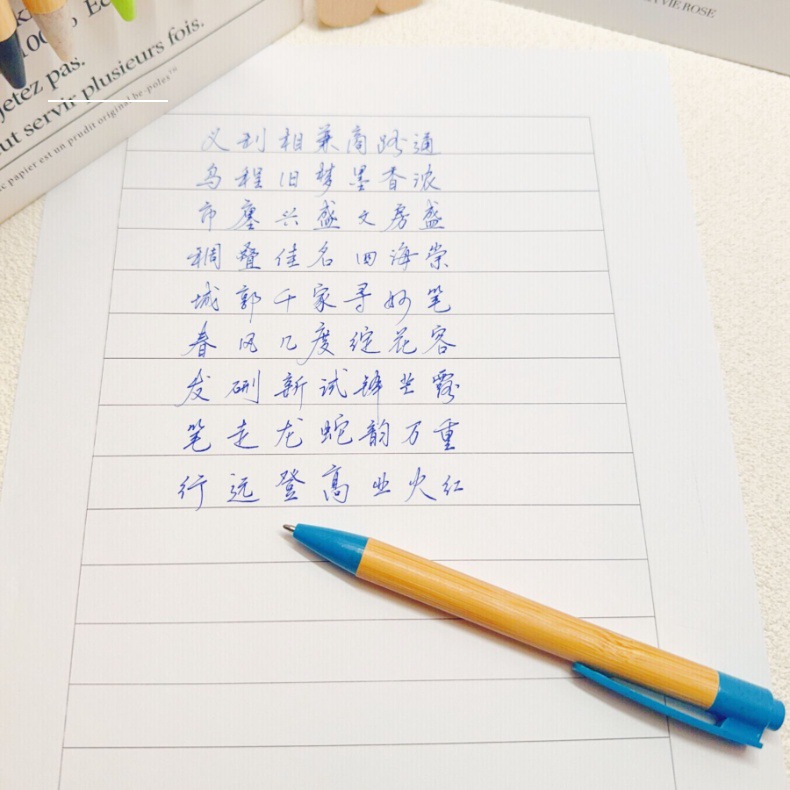 100%, Ec
jetez pas.
ut servir plusieurs fois.
papier est un prudit original be-poles™
VIE ROSE
义利相兼商路通
乌程旧梦墨香浓
市廛兴盛文房盛
稠叠佳名四海崇
城郭千家寻妙笔
春风几度绽花容
发硎新试锋芒露
笔走龙蛇韵万重
行远登高业火红